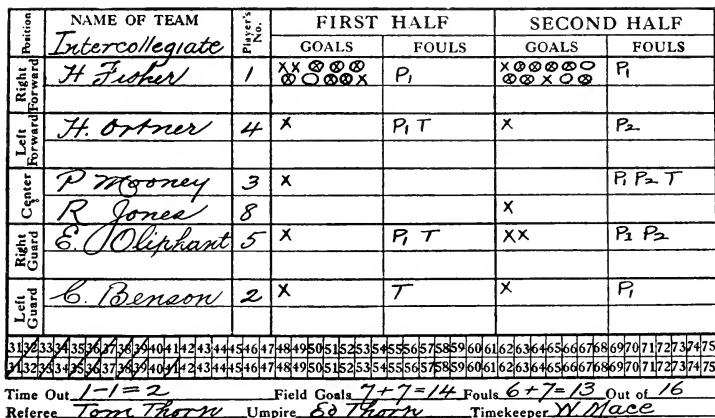 Position NAME OF TEAM Player's No. FIRST HALF SECOND HALF
Intercollegiate GOALS FOULS GOALS FOULS
Right Forward H Fisher 1 XX⊗⊗⊗ P1 X⊗⊗⊗⊗O P1
⊗O⊗⊗X ⊗⊗XO⊗
Left Forward H. Ortner 4 X P1 T X P2
Center P Mooney 3 X P1 P2 T
R Jones 8 X
Right Guard E. Oliphant 5 X P1 T XX P1 P2
Left Guard C. Benson 2 X T X P1
31 32 33 34 35 36 37 38 39 40 41 42 43 44 45 46 47 48 49 50 51 52 53 54 55 56 57 58 59 60 61 62 63 64 65 66 67 68 69 70 71 72 73 74 75
31 32 33 34 35 36 37 38 39 40 41 42 43 44 45 46 47 48 49 50 51 52 53 54 55 56 57 58 59 60 61 62 63 64 65 66 67 68 69 70 71 72 73 74 75
Time Out 1-1=2 Field Goals 7+7=14 Fouls 6+7=13 Out of 16
Referee Tom Thorn Umpire Ed Thorn Timekeeper W Mace